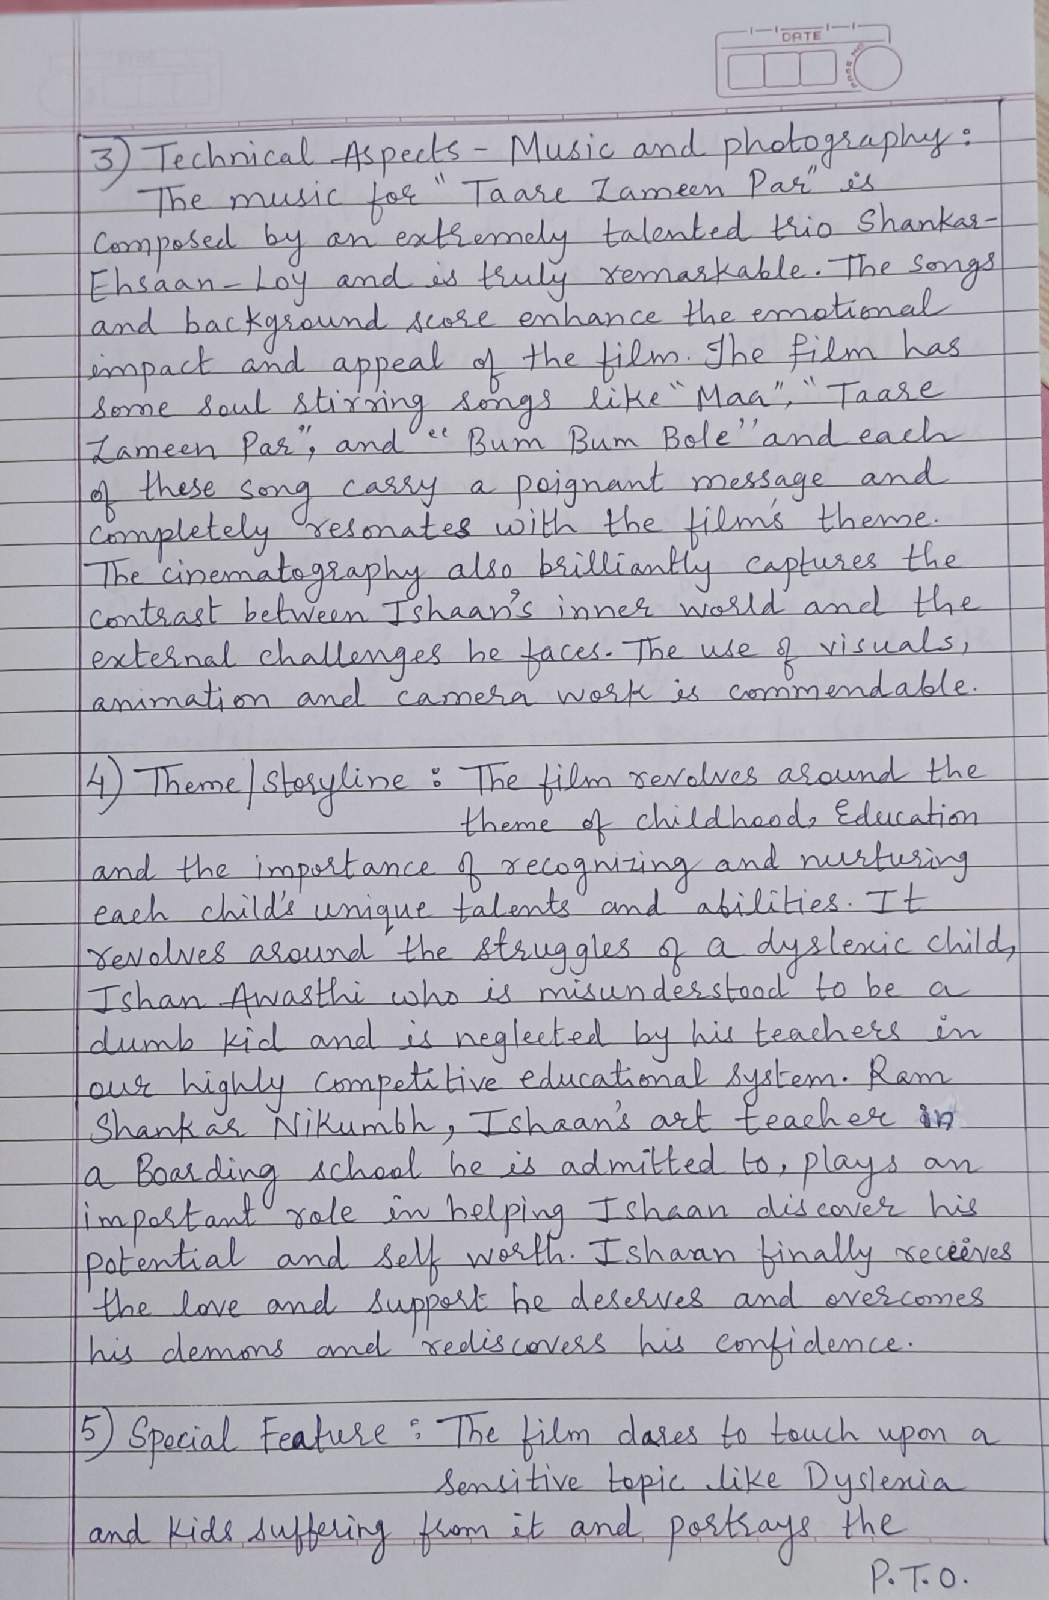 DATE
PAGE NO.
3) Technical Aspects - Music and photography :
The music for "Taare Zameen Par" is
composed by an extremely talented trio Shankar-
Ehsaan-Loy and is truly remarkable. The songs
and background score enhance the emotional
impact and appeal of the film. The film has
some soul stirring songs like "Maa", "Taare
Zameen Par", and "Bum Bum Bole" and each
of these song carry a poignant message and
completely resonates with the film's theme.
The cinematography also brilliantly captures the
contrast between Ishaan's inner world and the
external challenges he faces. The use of visuals,
animation and camera work is commendable.
4) Theme/Storyline : The film revolves around the
theme of childhood, Education
and the importance of recognizing and nurturing
each child's unique talents and abilities. It
revolves around the struggles of a dyslexic child,
Ishan Awasthi who is misunderstood to be a
dumb kid and is neglected by his teachers in
our highly competitive educational system. Ram
Shankar Nikumbh, Ishaan's art teacher in
a Boarding school he is admitted to, plays an
important role in helping Ishaan discover his
potential and self worth. Ishaan finally receives
the love and support he deserves and overcomes
his demons and rediscovers his confidence.
5) Special Feature : The film dares to touch upon a
sensitive topic like Dyslexia
and kids suffering from it and portrays the
P.T.O.